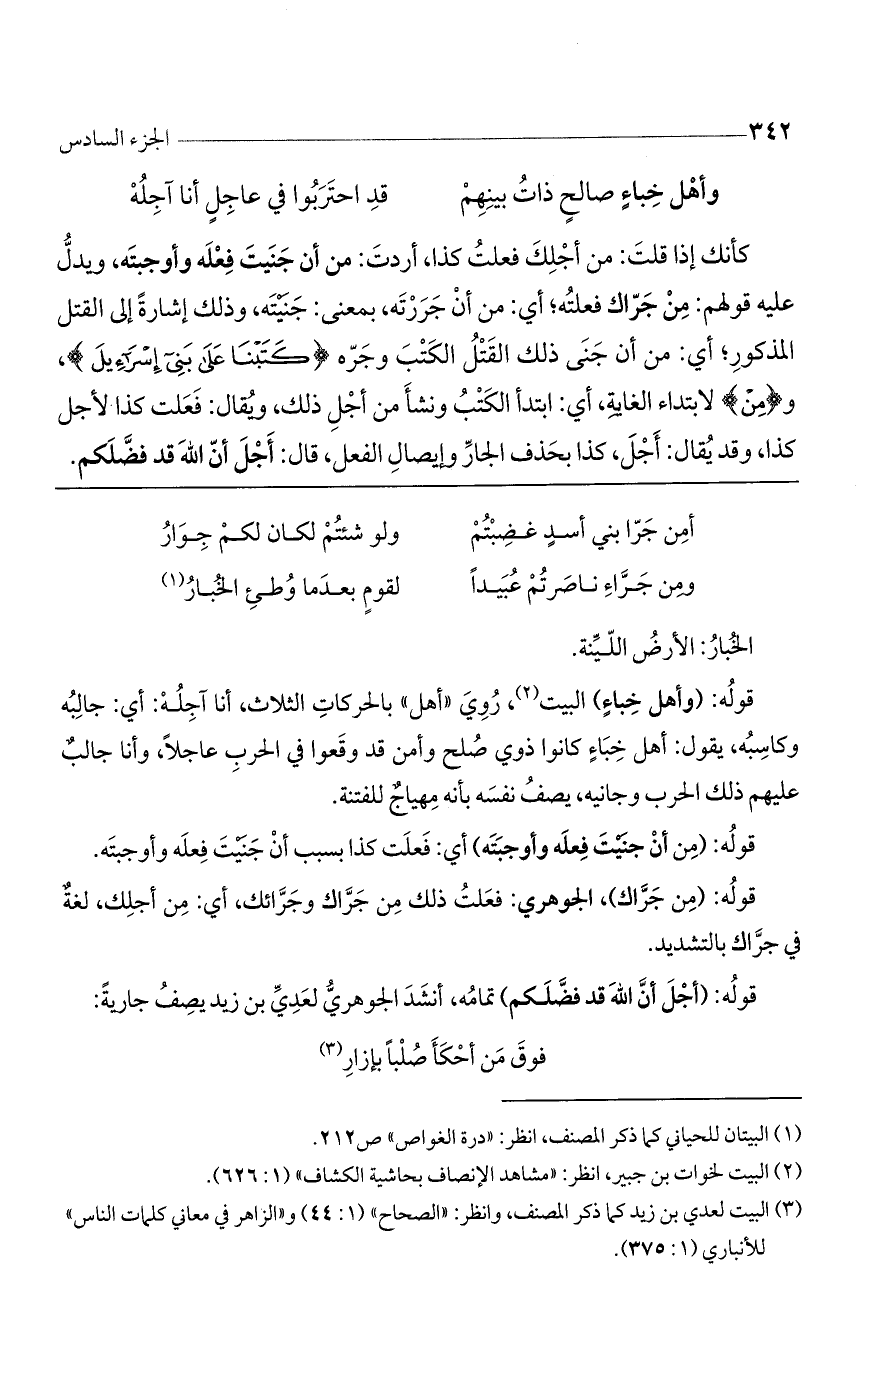 ٣٤٢ الجزء السادس
وأهْل خِباءٍ صالحٍ ذاتُ بينِهِمْ قدِ احتَرَبُوا في عاجِلٍ أنا آجِلُهْ
كأنك إذا قلتَ: من أجْلِكَ فعلتُ كذا، أردتَ: من أن جَنَيتَ فِعْلَه وأوجبتَه، ويدلُّ
عليه قولهم: مِنْ جَرّاك فعلتُه؛ أي: من أنْ جَرَرْتَه، بمعنى: جَنَيْتَه، وذلك إشارةً إلى القتل
المذكورِ؛ أي: من أن جَنَى ذلك القَتْلُ الكَتْبَ وجَرّه ﴿كَتَبْنَا عَلَىٰ بَنِىٓ إِسْرَٰٓءِيلَ﴾،
و﴿مِنْ﴾ لابتداء الغايةِ، أي: ابتدأ الكَتْبُ ونشأَ من أجْلِ ذلك، ويُقال: فَعَلت كذا لأجل
كذا، وقد يُقال: أَجْلَ، كذا بحَذف الجارِّ وإيصالِ الفعل، قال: أَجْلَ أنّ اللهَ قد فضَّلَكم.
أمِن جَرّا بني أسدٍ غضِبْتُمْ ولو شئتُمْ لكان لكمْ جِوَارُ
ومِن جَرَّاءِ ناصَرتُمْ عُبَيداً لقومٍ بعدَما وُطئِ الخُبارُ(١)
الخُبارُ: الأرضُ اللّيِّنة.
قولُه: (وأهل خِباءٍ) البيت(٢)، رُوِيَ «أهل» بالحركاتِ الثلاث، أنا آجِلُهْ: أي: جالِبُه
وكاسِبُه، يقول: أهل خِبَاءٍ كانوا ذوي صُلح وأمن قد وقَعوا في الحربِ عاجلاً، وأنا جالبٌ
عليهم ذلك الحرب وجانيه، يصفُ نفسَه بأنه مِهياجٌ للفتنة.
قولُه: (مِن أنْ جنَيْتَ فِعلَه وأوجبَتَه) أي: فَعلَت كذا بسبب أنْ جَنَيْتَ فِعلَه وأوجبتَه.
قولُه: (مِن جَرَّاك)، الجوهري: فعَلتُ ذلك مِن جَرَّاك وجَرَّائك، أي: مِن أجلِك، لغةٌ
في جرَّاك بالتشديد.
قولُه: (أجْلَ أنَّ اللهَ قد فضَّلَكم) تمامُه، أنشَدَ الجوهريُّ لعَدِيِّ بن زيد يصِفُ جاريةً:
فوقَ مَن أحْكَأَ صُلْباً بإزارِ(٣)
(١) البيتان للحياني كما ذكر المصنف، انظر: «درة الغواص» ص٢١٢.
(٢) البيت لخوات بن جبير، انظر: «مشاهد الإنصاف بحاشية الكشاف» (١: ٦٢٦).
(٣) البيت لعدي بن زيد كما ذكر المصنف، وانظر: «الصحاح» (١: ٤٤) و«الزاهر في معاني كلمات الناس»
للأنباري (١: ٣٧٥).